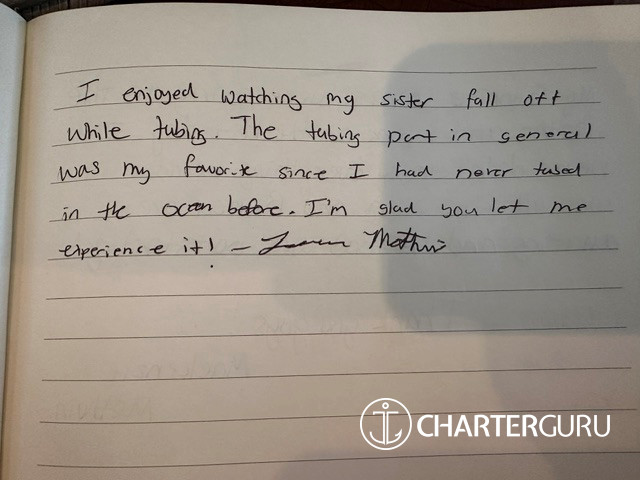 I enjoyed watching my sister fall off
while tubing. The tubing part in general
was my favorite since I had never tubed
in the ocean before. I'm glad you let me
experience it! -
CHARTERGURU